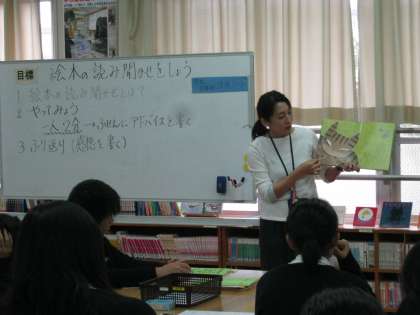 目標 絵本の読み聞かせをしよう
1 絵本の読み聞かせとは?
2 やってみよう
一人2分→ふせんにアドバイスを書く
3 ふり返り(感想を書く)